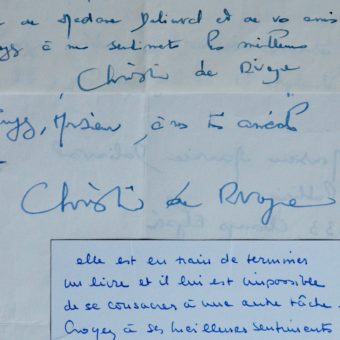 de Madame Dalicort et de vos amis
à mes sentiments les meilleurs
Christine de Rivoyre
Monsieur, à vos
Christine de Rivoyre
elle est en train de terminer
un livre et il lui est impossible
de se consacrer à une autre tâche.
Croyez à ses meilleurs sentiments